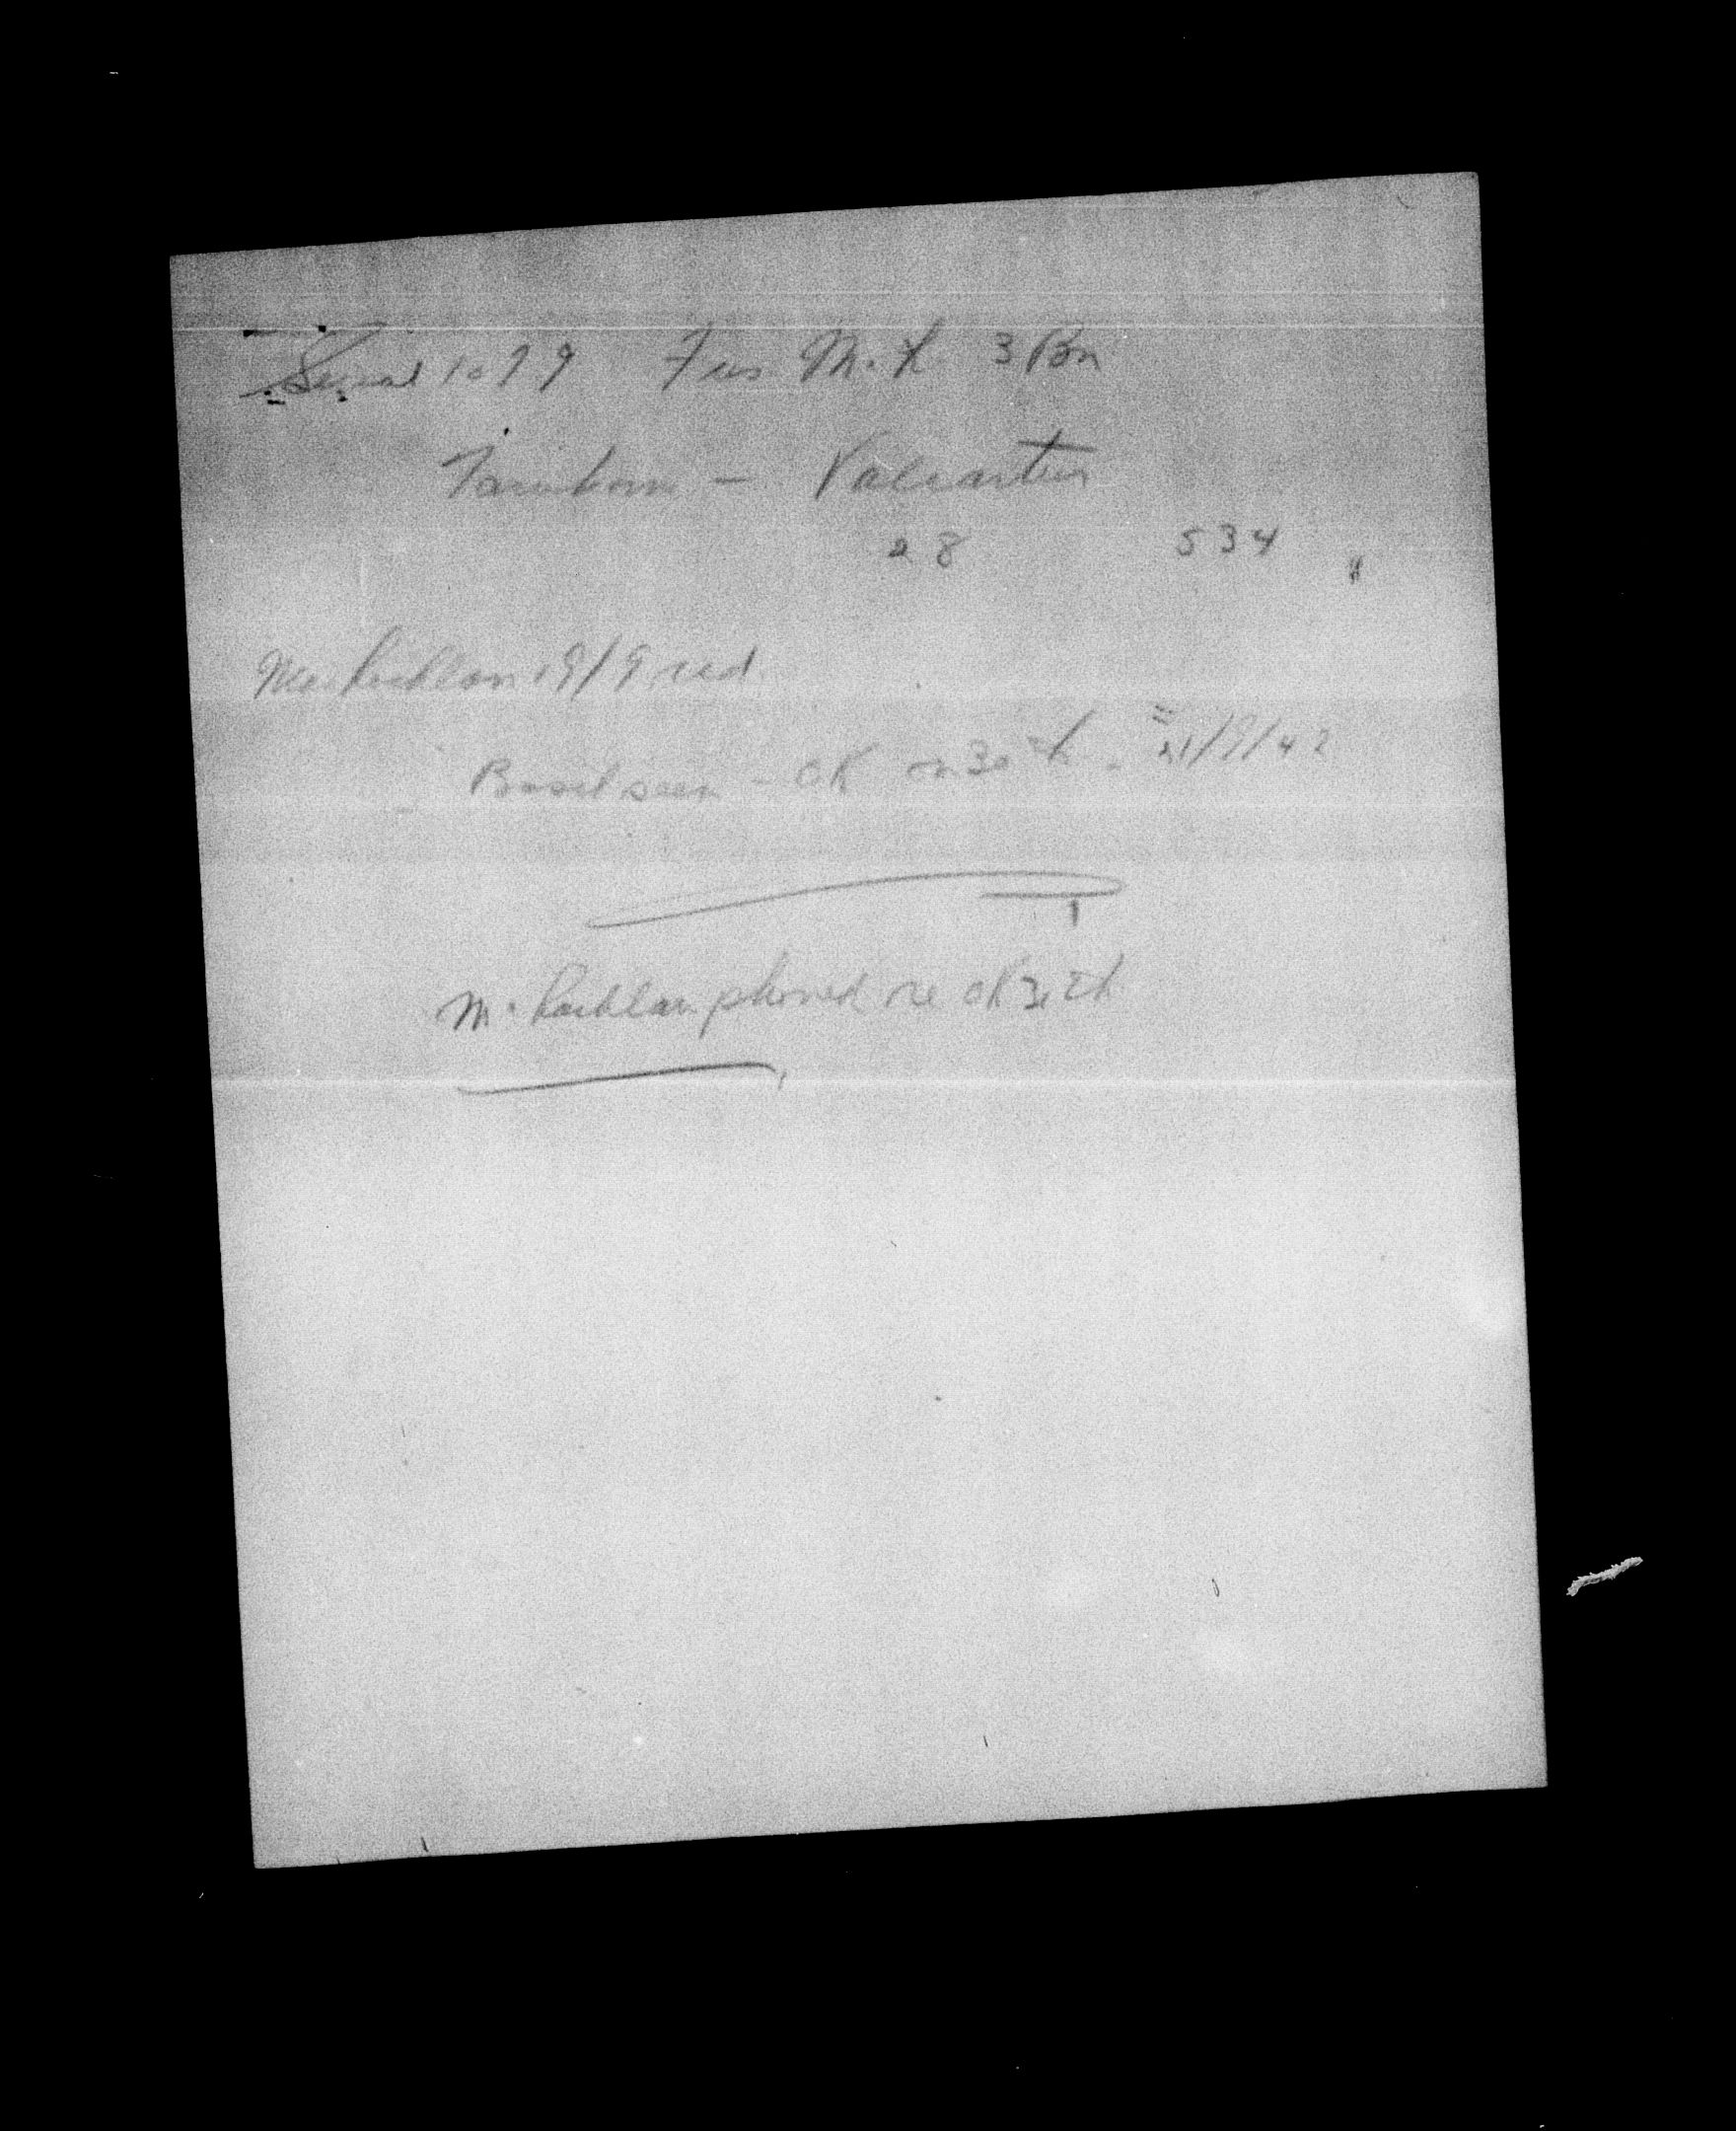 Serial 1079 Fus M. R. 3 Bn
Farnham - Valcartier
28 534
MacLachlan 19/9
Basil seen - OK on 30th - 21/9/42
McLachlan phoned re OK 30th